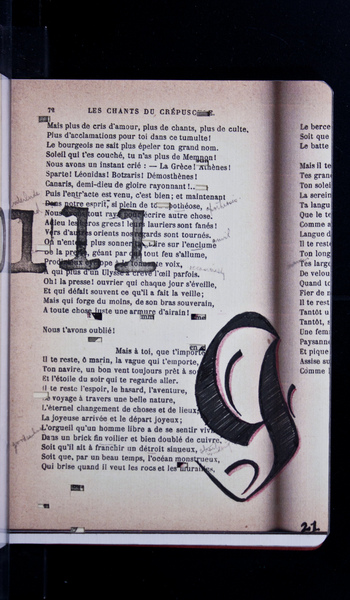 78 LES CHANTS DU CRÉPUSC
Mais plus de cris d'amour, plus de chants, plus de culte,
Plus d'acclamations pour toi dans ce tumulte!
Le bourgeois ne sait plus épeler ton grand nom.
Soleil qui t'es couché, tu n'as plus de Memnon!
Nous avons un instant crié : — La Grèce! Athènes!
Sparte! Léonidas! Botzaris! Démosthènes!
Canaris, demi-dieu de gloire rayonnant!...
Puis l'entr'acte est venu, c'est bien; et maintenant
Dans notre esprit, si plein de ton apothéose,
Nous avons tout rayé pour écrire autre chose.
Adieu les héros grecs! leurs lauriers sont fanés!
Vers d'autres orients nos regards sont tournés.
On n'entend plus sonner gloire sur l'enclume
De la presse, géant par qui tout feu s'allume,
Prodigieux cyclope à la tonnante voix,
A qui plus d'un Ulysse a crevé l'œil parfois.
Oh! la presse! ouvrier qui chaque jour s'éveille,
Et qui défait souvent ce qu'il a fait la veille;
Mais qui forge du moins, de son bras souverain,
A toute chose juste une armure d'airain!
Nous t'avons oublié!
Mais à toi, que t'importe
Il te reste, ô marin, la vague qui t'emporte,
Ton navire, un bon vent toujours prêt à so
Et l'étoile du soir qui te regarde aller.
Il te reste l'espoir, le hasard, l'aventure,
Le voyage à travers une belle nature,
L'éternel changement de choses et de lieux,
La joyeuse arrivée et le départ joyeux;
L'orgueil qu'un homme libre a de se sentir viv
Dans un brick fin voilier et bien doublé de cuivre,
Soit qu'il ait à franchir un détroit sinueux,
Soit que, par un beau temps, l'océan monstrueux,
Qui brise quand il veut les rocs et les murailles,
Le berce
Soit que
Le batte
Mais il te
Tes gran
Ton solei
La serein
Ta langu
Que le te
Comme a
Langue d
Il te reste
Ton long
Tes large
De velou
Quand to
Fier de n
Il te rest
Tantôt u
Tantôt,
Une fem
Paysann
Et pique
Assise su
Comme
21